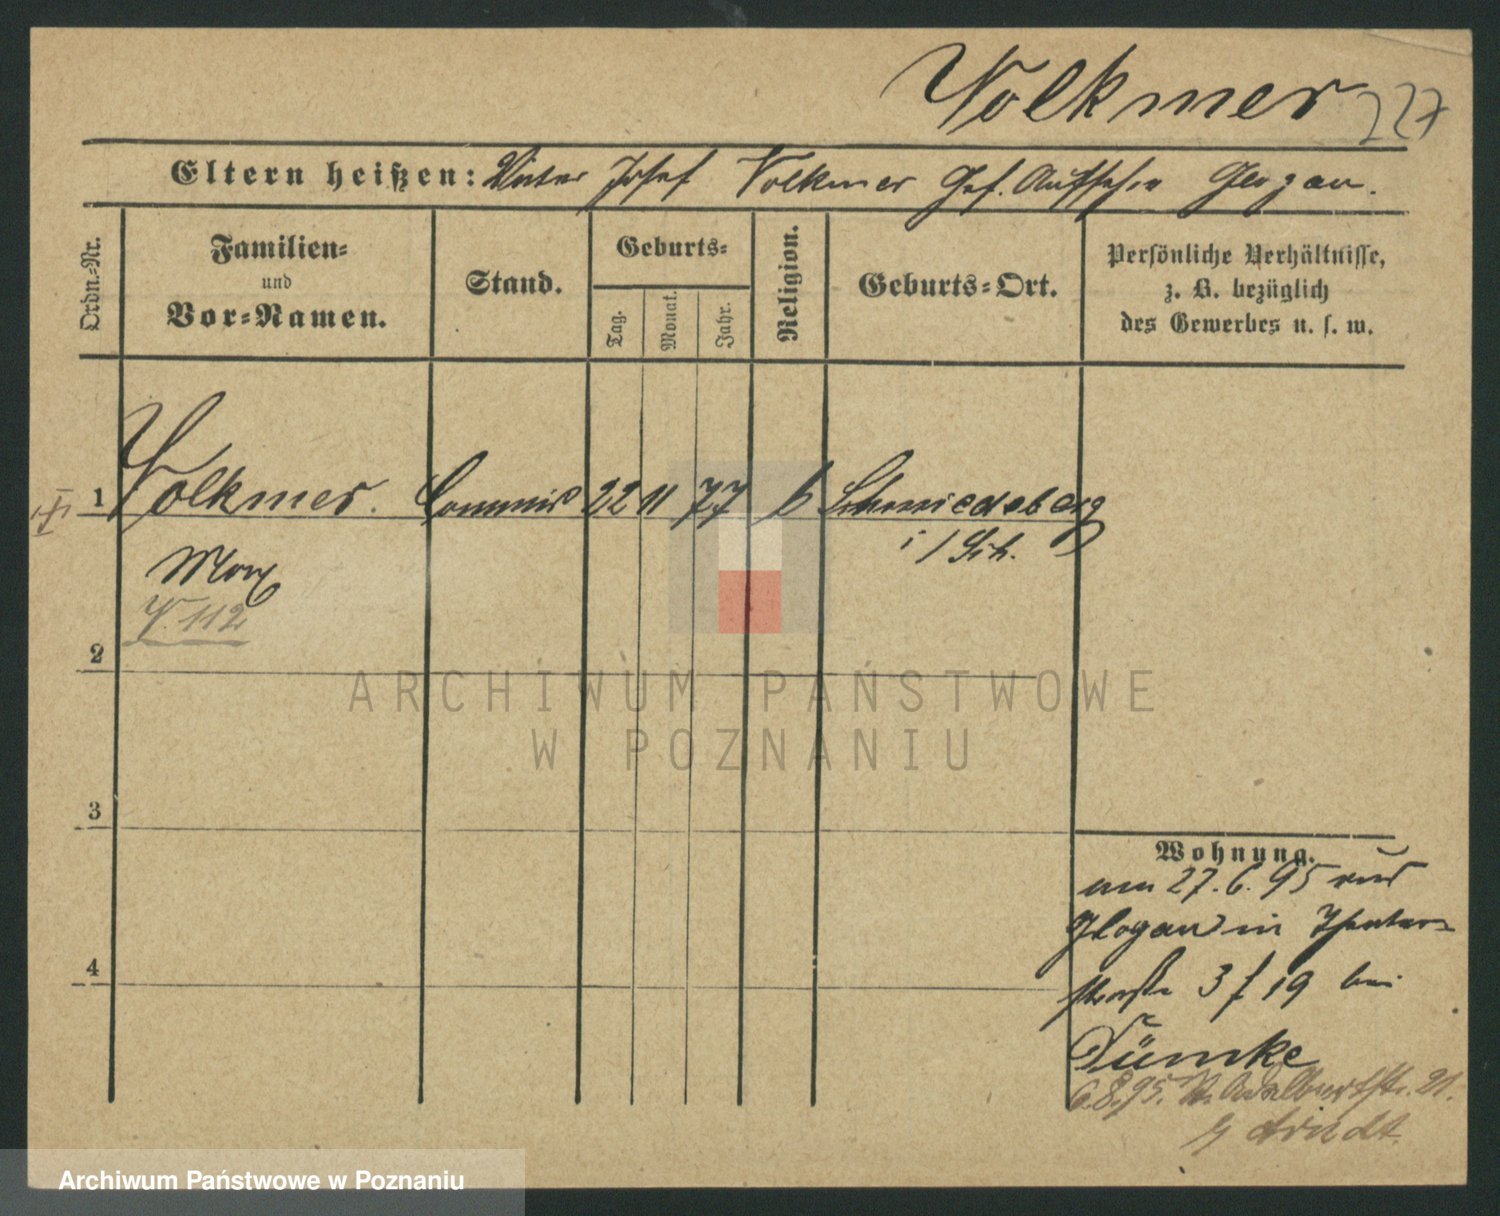 Volkmer 227
Eltern heißen: Vater Josef Volkmer Gef. Aufseher Glogau.
Ordn.-Nr.
Familien-
und
Vor-Namen.
Stand.
Geburts-
Tag.
Monat.
Jahr.
Religion.
Geburts-Ort.
Persönliche Verhältnisse,
z. B. bezüglich
des Gewerbes u. s. w.
1 Volkmer. Commis 22 11 77 Schmiedeberg
i/Sch.
Max
V. 112
2
3
4
Wohnung.
am 27.6.95 aus
Glogau in Theater-
straße 3 f 19 bei
Tümke
6.8.95. Adalbertstr. 21.
Arndt.
ARCHIWUM PAŃSTWOWE
W POZNANIU
Archiwum Państwowe w Poznaniu